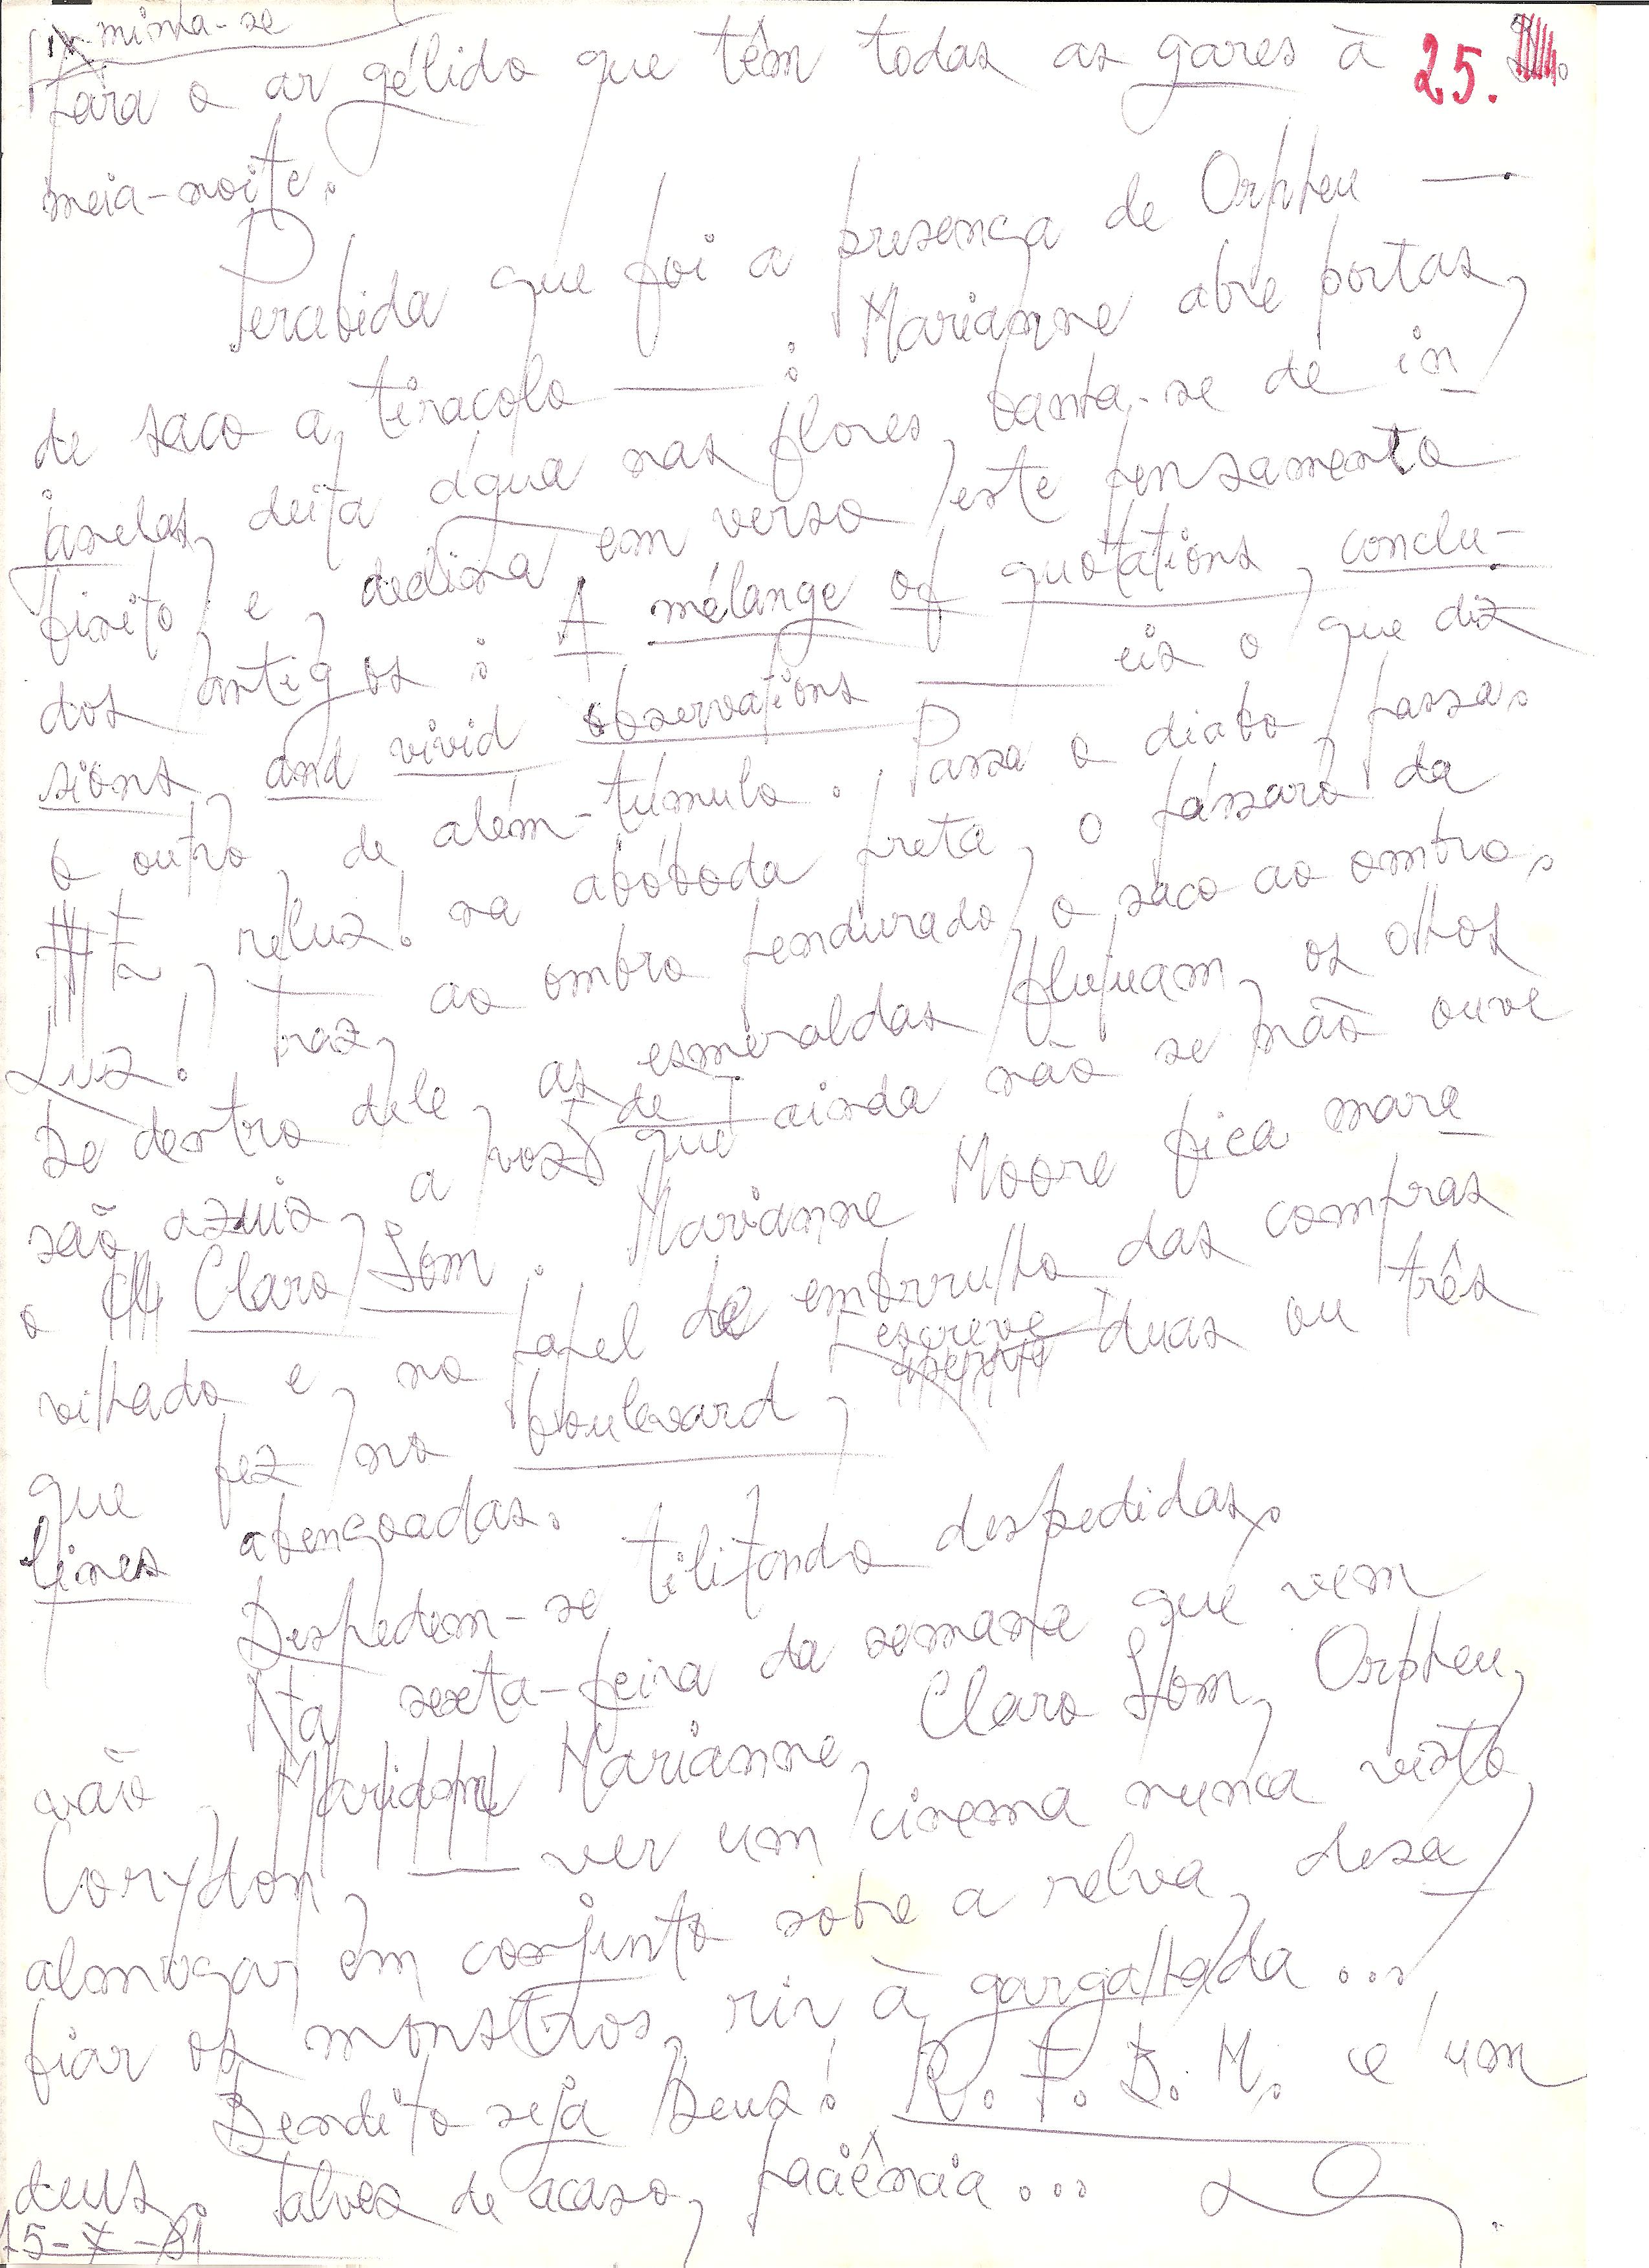 minha-se
para o ar gélido que têm todas as gares à 25.
meia-noite.
Percebida que foi a presença de Orpheu —
de saco a tiracolo — : Marianne abre portas,
janelas, deita água nas flores, banha-se de in
finito, e, dedica em verso este pensamento
dos antigos : A mélange of quotations, conclu-
sions, and vivid observations — eis o que diz
o outro, de além-túmulo. Passa o diabo, passa.
E, reluz! na abóboda preta, o pássaro da
Luz! Traz, ao ombro pendurado, o saco ao ombro.
De dentro dele, as esmeraldas flutuam, os olhos
são azuis, a voz de que ainda não se não ouve
o Claro Som. Marianne Moore fica mara
vilhada e, no papel de embrulho das compras
que fez no boulevard, escreve duas ou três
lines abençoadas.
Despedem-se tilitando despedidas.
Na sexta-feira da semana que vem
vão, Marianne, Claro Som, Orpheu,
Corydon, — ver um cinema nunca visto,
almoçar em conjunto sobre a relva, desa
fiar os monstros, rir à gargalhada...
Bendito seja Deus! R. F. D. M. é um
deus. Talvez de acaso, paciência...
15-X-81